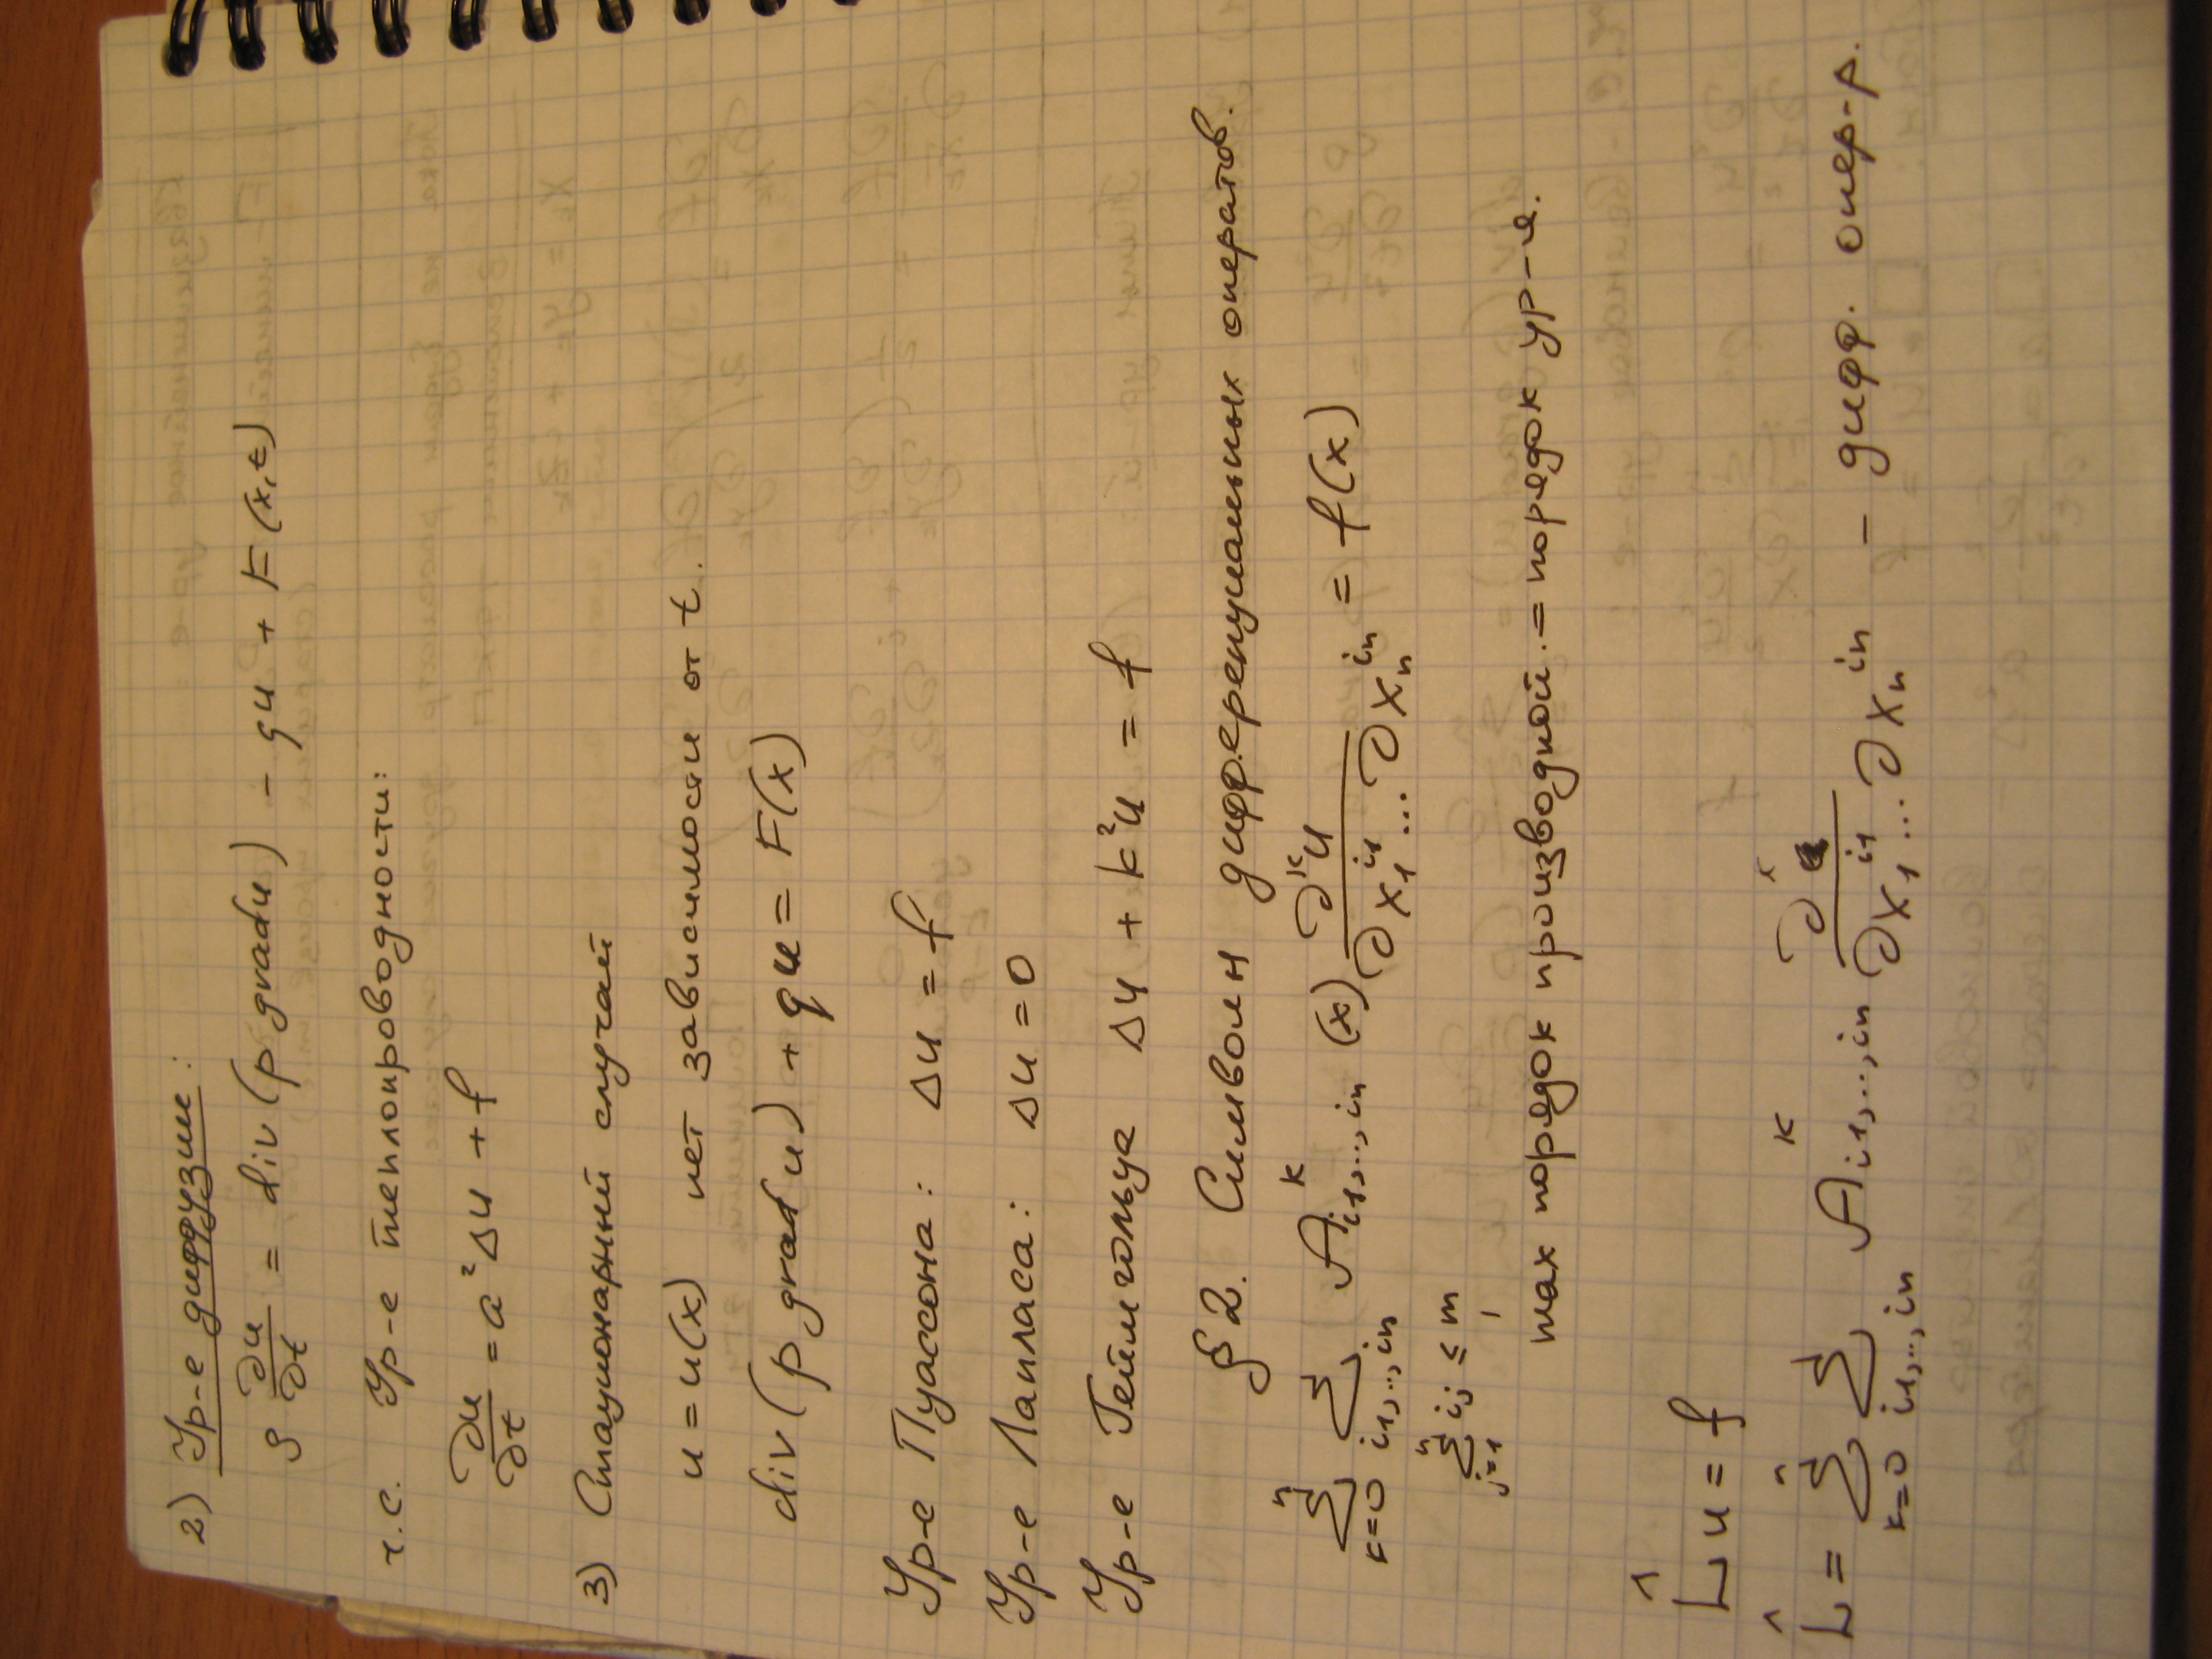 2) Ур-е диффузии:
ρ ∂u/∂t = div(p gradu) - qu + F(x,t)
ч.с. Ур-е теплопроводности:
∂u/∂t = a²Δu + f
3) Стационарный случай
u = u(x) нет зависимости от t.
div(p grad u) + qu = F(x)
Ур-е Пуассона: Δu = f
Ур-е Лапласа: Δu = 0
Ур-е Геймгольца Δu + k²u = f
§2. Символы дифференциальных операторов.
∑_{k=0}^{n} ∑_{i1,...,in} A^k_{i1,...,in}(x) ∂^k u / ∂x_1^{i1}...∂x_n^{in} = f(x)
∑_{j=1}^{n} ij ≤ m
max порядок производной. = порядок ур-я.
L̂u = f
L̂ = ∑_{k=0}^{n} ∑_{i1,...,in} A^k_{i1,...,in} ∂^k / ∂x_1^{i1}...∂x_n^{in} - дифф. опер-р.